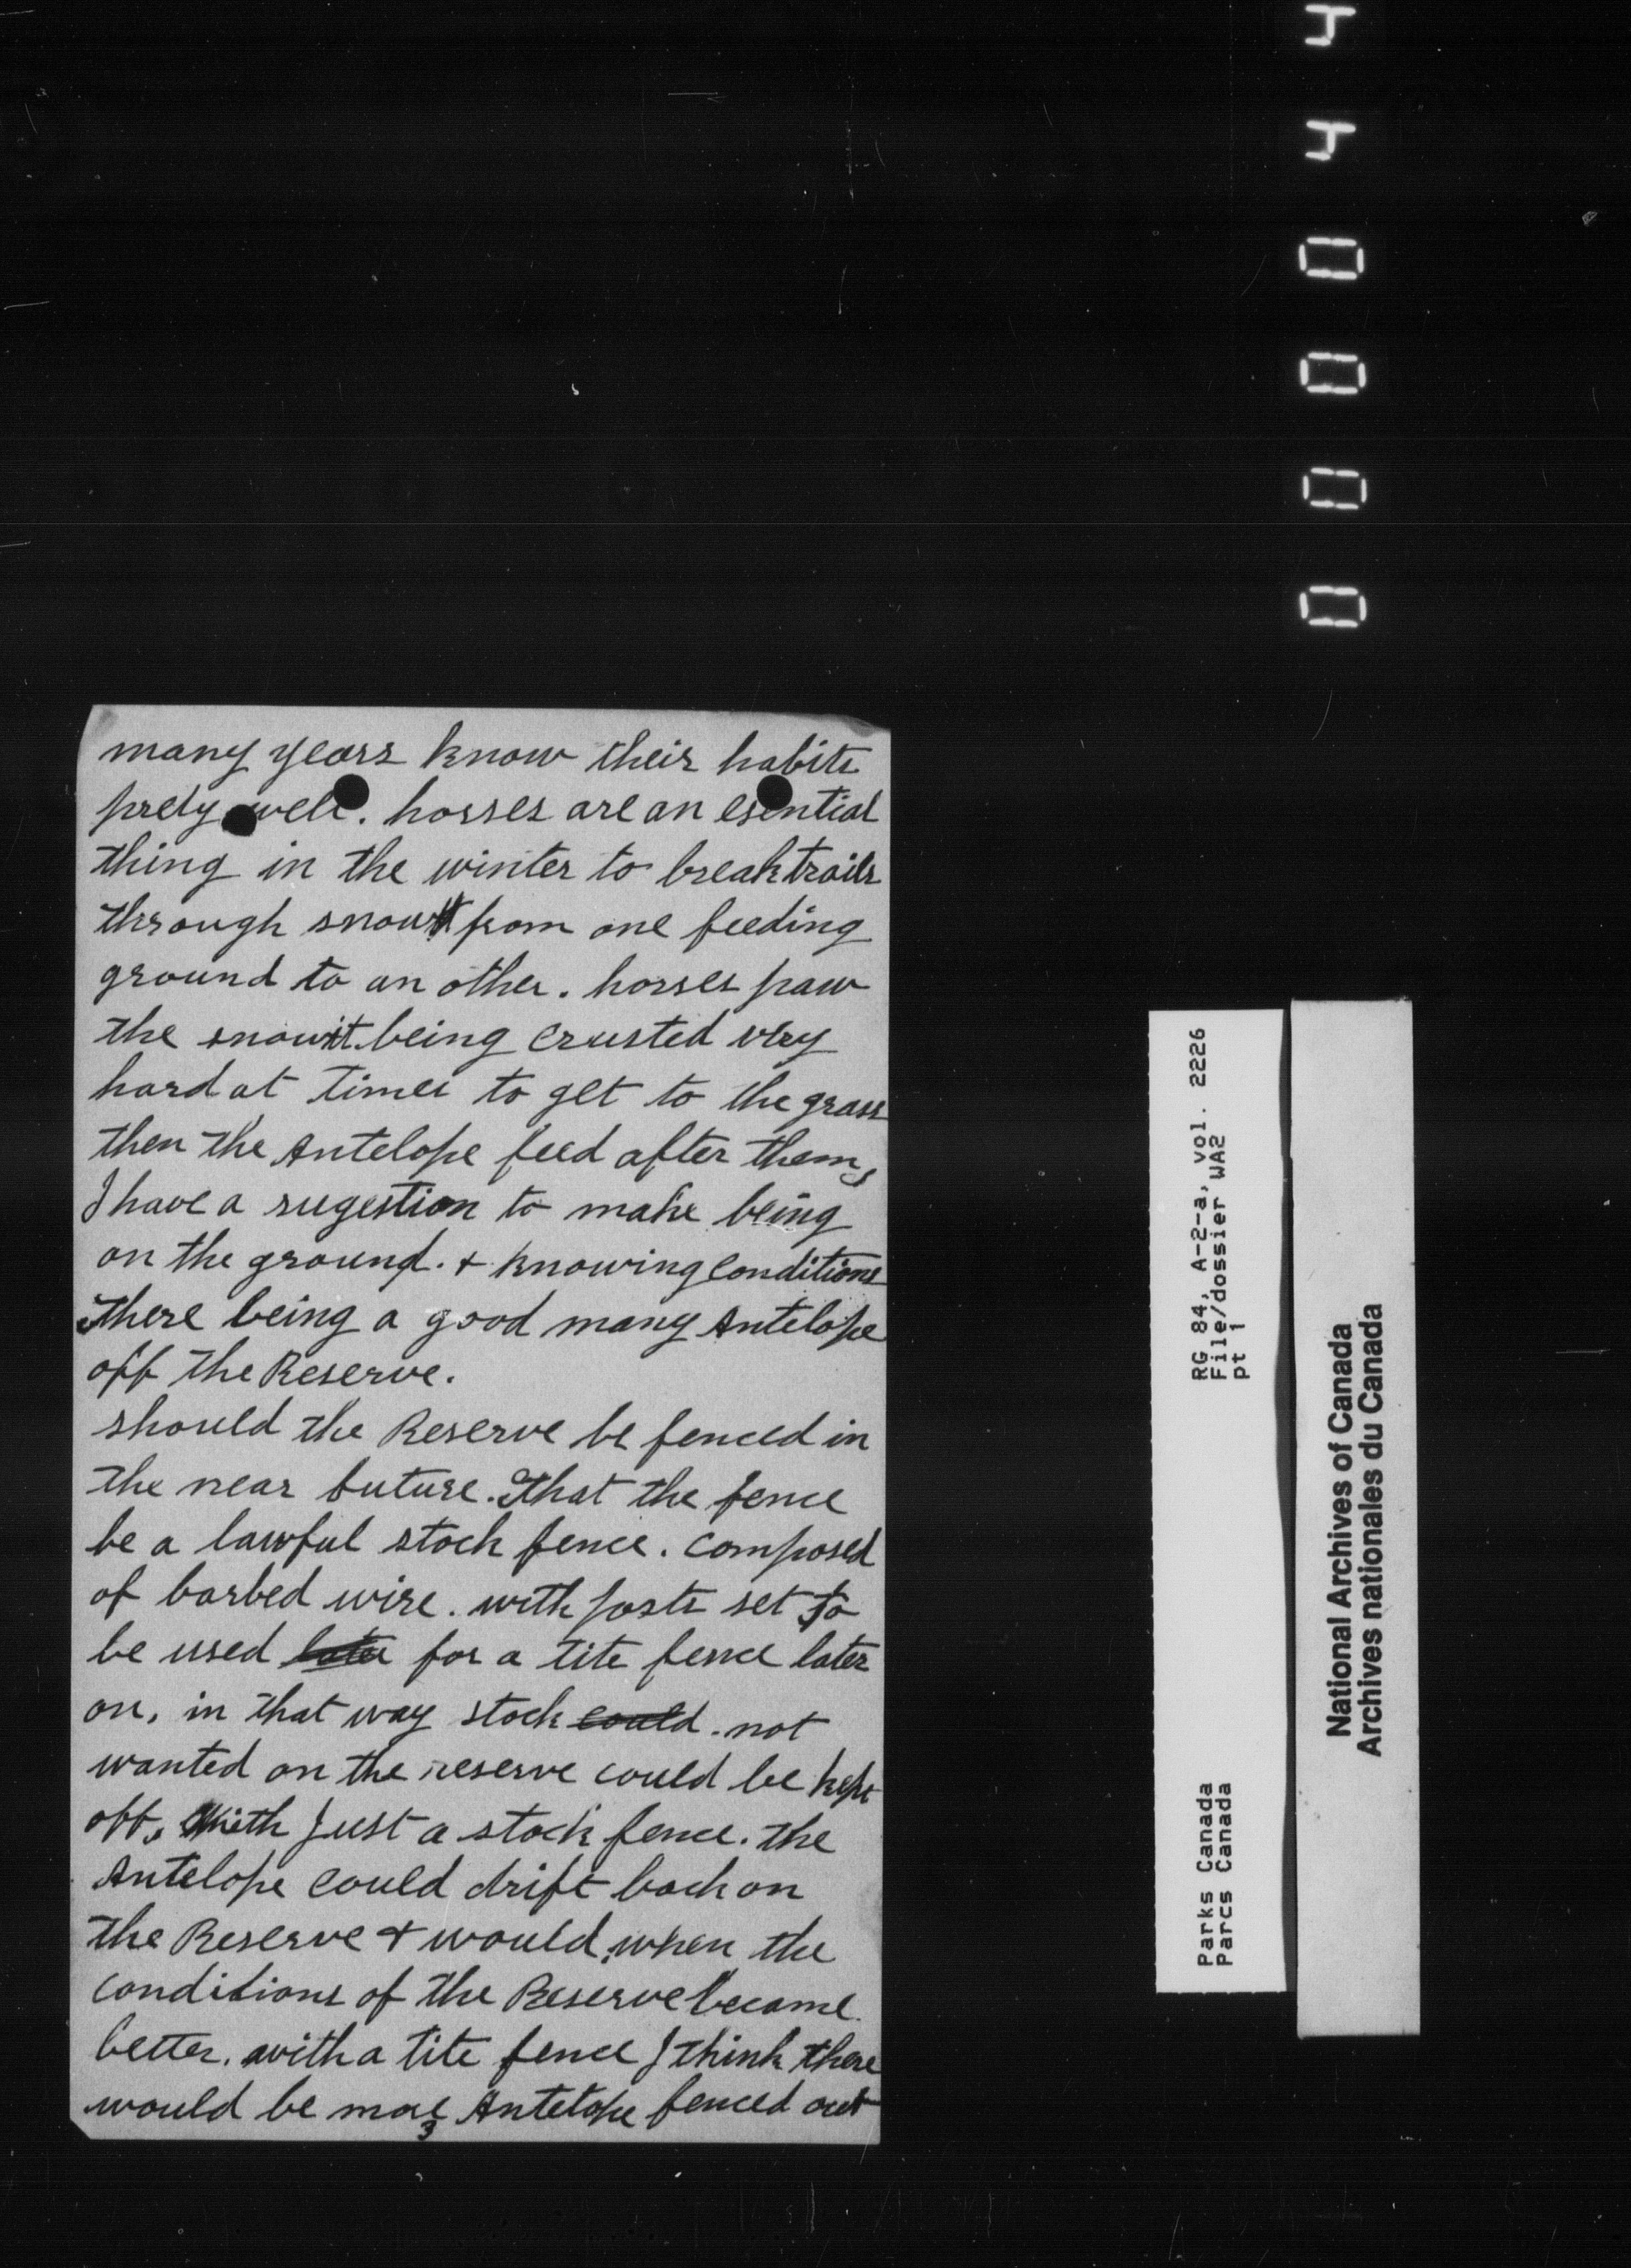 many years know their habits
prety well. horses are an esential
thing in the winter to break trails
through snow from one feeding
ground to an other. horses paw
the snow it being crusted very
hard at times to get to the grass
then the Antelope feed after them,
I have a sugestion to make being
on the ground. + knowing conditions
there being a good many Antelope
off the Reserve.
should the Reserve be fenced in
the near future. That the fence
be a lawful stock fence. composed
of barbed wire. with posts set to
be used later for a tite fence later
on, in that way stock could. not
wanted on the reserve could be kept
off, with just a stock fence. the
Antelope could drift back on
the Reserve + would, when the
conditions of the Reserve became
better. with a tite fence I think there
would be more Antelope fenced out
3
RG 84, A-2-a, vol. 2226
File/dossier WA2
pt 1
Parks Canada
Parcs Canada
National Archives of Canada
Archives nationales du Canada